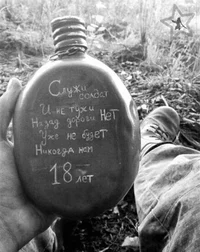 Служи
солдат
И не тужи
Назад дороги НЕТ
Уже не будет
Никогда нам
18 лет